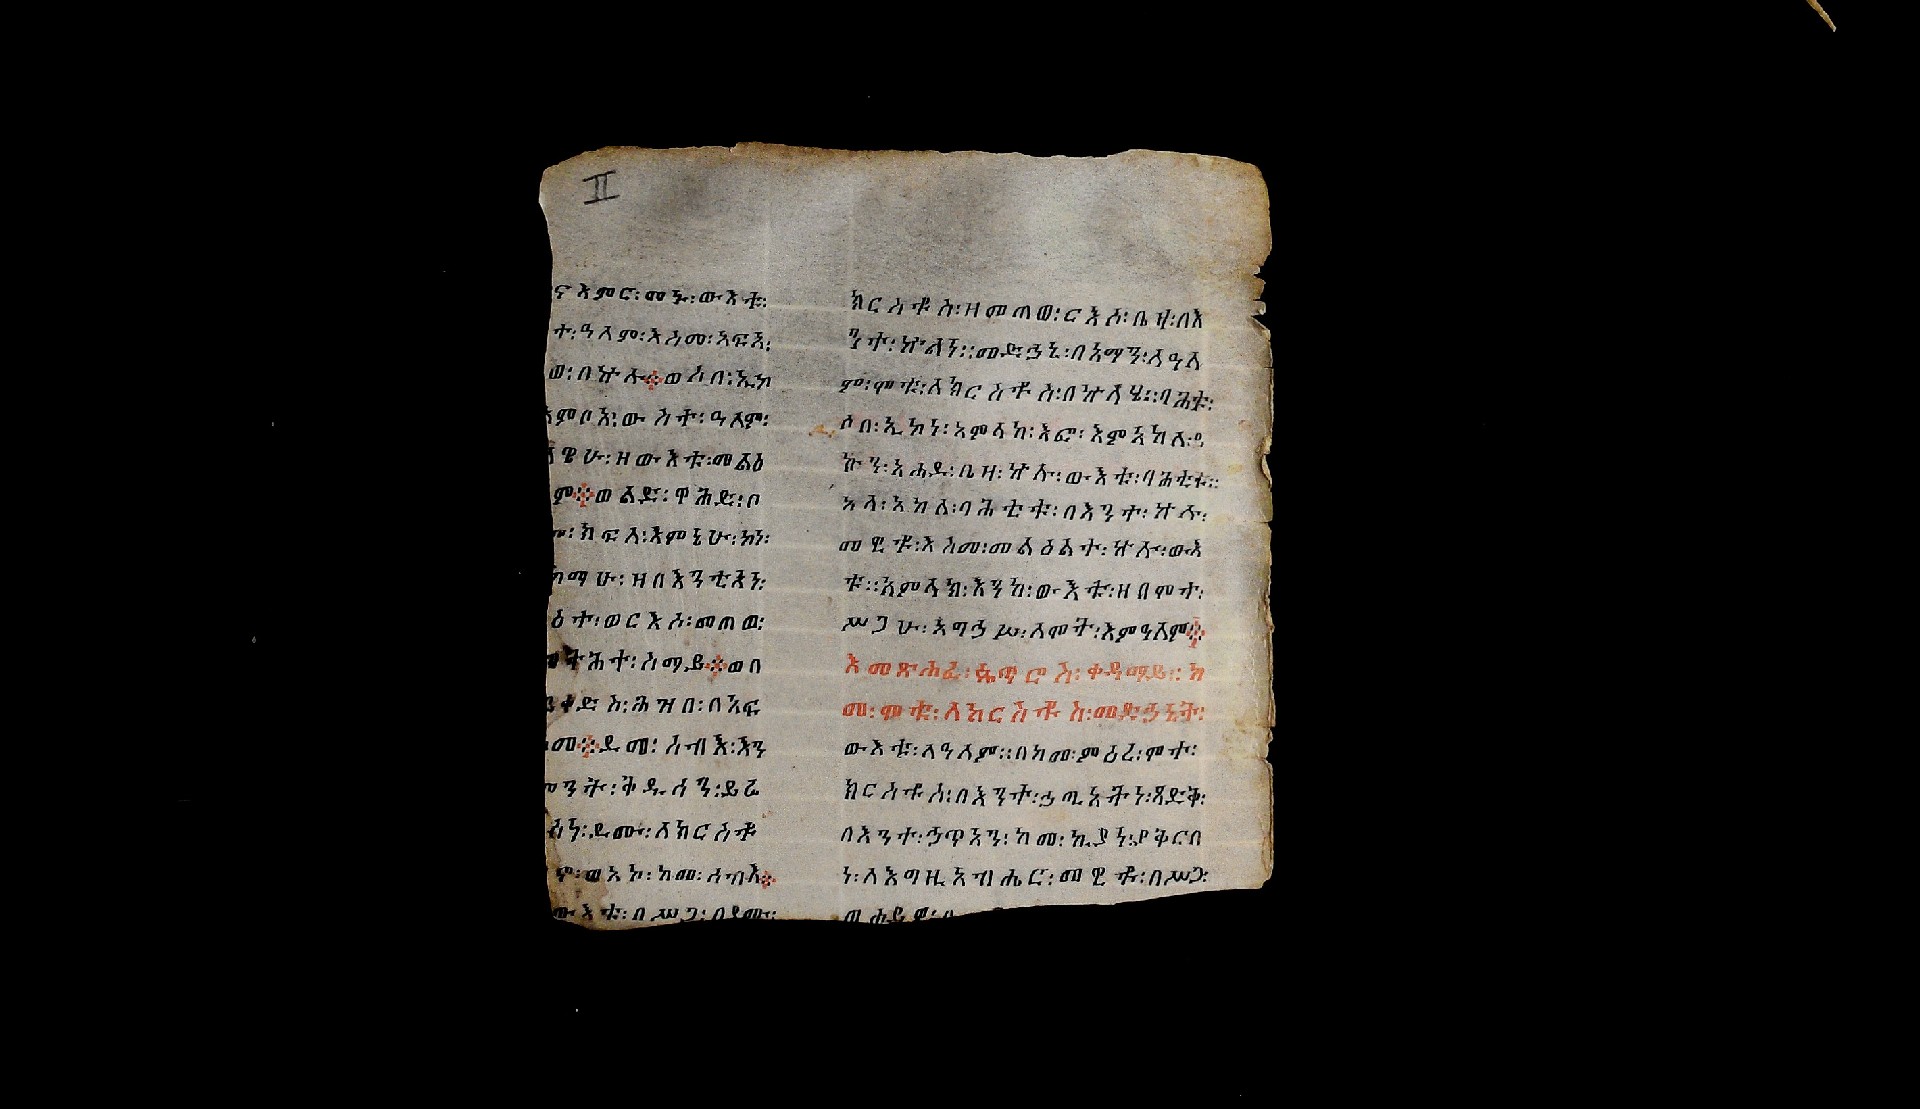 II
እምር፡ መኑ፡ ውእቱ፡
ዓለም፡ እስመ፡ አፍአ፡
በኵሉ፨ ወሶበ፡ ኢኮ
ውስተ፡ ዓለም፡
ዘውእቱ፡ መልዕ
ወልድ፡ ዋሕድ፡ ቦ
ክፍለ፡ እምኔሁ፡ ከነ፡
ከማሁ፡ ዘበእንቲአነ፡
ወርእሶ፡ መጠወ፡
ሰማይ፨ ወበ
ሕዝበ፡ በአፍ
ደሙ፡ ሰብእ፡ እን
ቅዱሰን፡ ይሬ
ደሙ፡ ለክርስቶ
ወአኮ፡ ከመ፡ ሰብእ፨
ውእቱ፡ በሥጋ፡ በደሙ፡
ክርስቶስ፡ ዘመጠወ፡ ርእሶ፡ ቤዛ፡ በእ
ንተ፡ ኵልነ፡፡ መድኃኒ፡ በአማን፡ ለዓለ
ም፡ ሞቱ፡ ለክርስቶስ፡ በኵላሄ፡፡ ባሕቱ፡
ሶበ፡ ኢኮነ፡ አምላክ፡ እፎ፡ እምአከለ፡ ዒ
ኮን፡ አሐዱ፡ ቤዛ፡ ኵሉ፡ ውእቱ፡ ባሕቲቱ፡፡
አላ፡ አከለ፡ ባሕቲቱ፡ በእንተ፡ ኵሉ፡
መዊቶ፡ እስመ፡ መልዕልተ፡ ኵሉ፡ ውእ
ቱ፡፡ አምላክ፡ እንከ፡ ውእቱ፡ ዘበሞተ፡
ሥጋሁ፡ አግኃሦ፡ ለሞት፡ እምዓለም፨
እመጽሐፈ፡ ጴጥሮስ፡ ቀዳማይ፡፡ ከ
መ፡ ሞቱ፡ ለክርስቶስ፡ መድኃኒት፡
ውእቱ፡ ለዓለም፡፡ በከመ፡ ምዕረ፡ ሞተ፡
ክርስቶስ፡ በእንተ፡ ኃጢአትነ፡ ጻድቅ፡
በእንተ፡ ኃጥአን፡ ከመ፡ ኪያነ፡ ያቅርበ
ነ፡ ለእግዚአብሔር፡ መዊቶ፡ በሥጋ፡
ወሐይዎ፡ በ